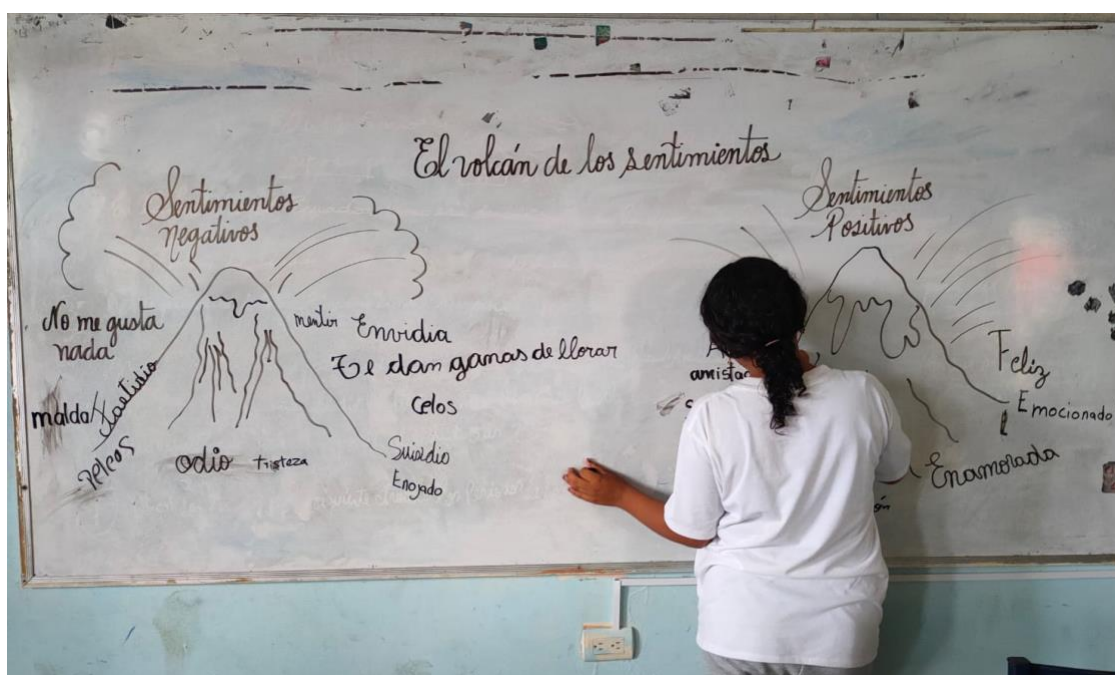 El volcán de los sentimientos
Sentimientos
negativos
No me gusta
nada
fastidio
maldad
Peleas
odio
tristeza
mentir
Envidia
Te dan ganas de llorar
Celos
Suicidio
Enojado
Sentimientos
Positivos
Feliz
Emocionado
Enamorada